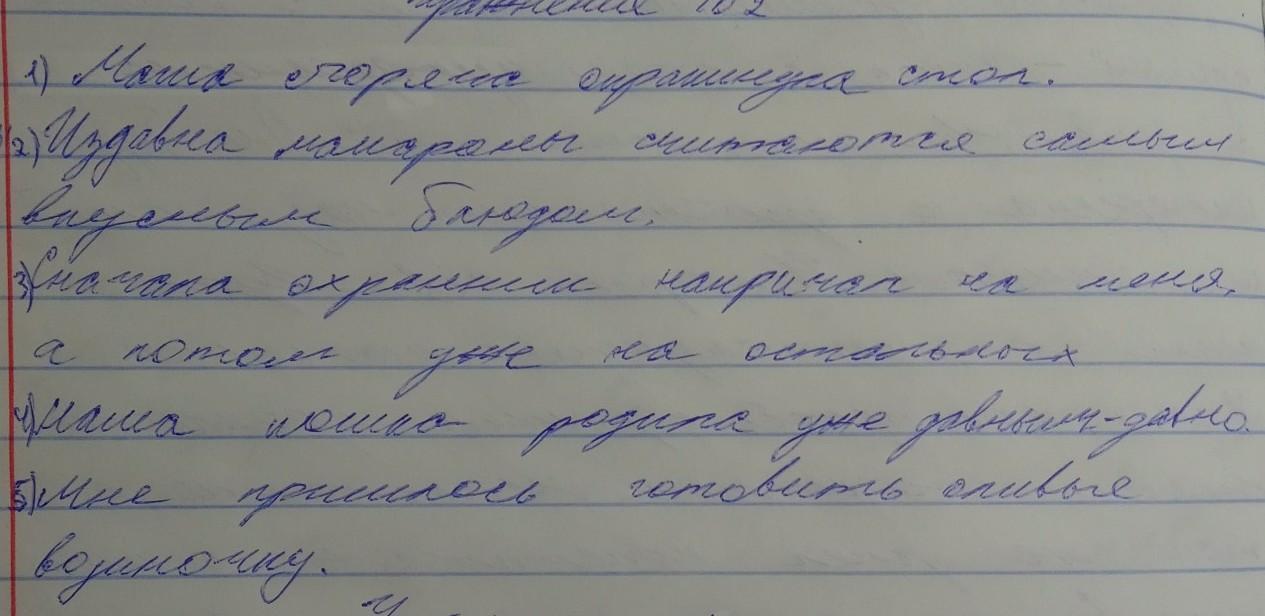 упражнение № 2
1) Маша сгоряча опрокинула стол.
2) Издавна макароны считаются самым
вкусным блюдом.
3) Сначала охранник накричал на меня,
а потом уже на остальных
4) Наша кошка родила уже давным-давно.
5) Мне пришлось готовить оливье
в одиночку.